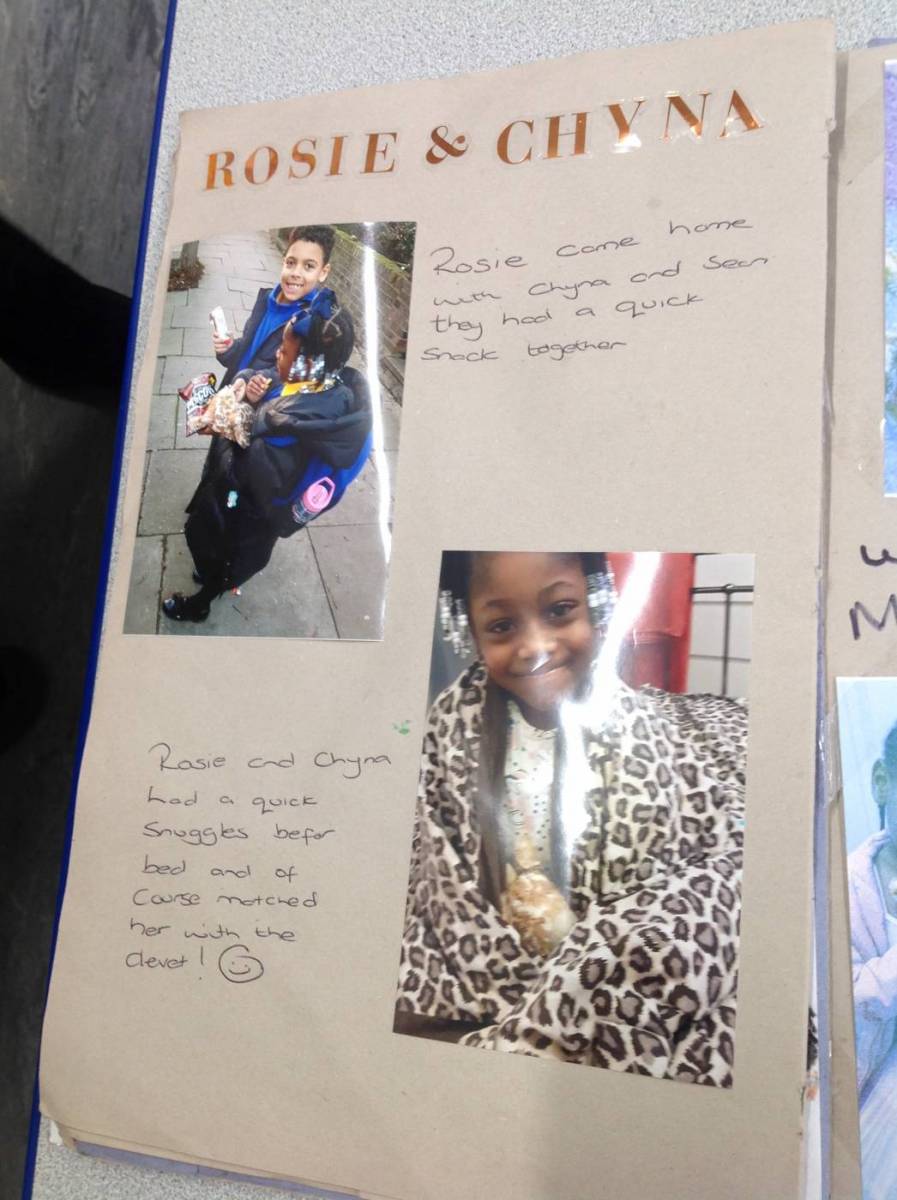 ROSIE & CHYNA
Rosie came home
with Chyna and Sean
they had a quick
Snack together
Rosie and Chyna
had a quick
Snuggles befor
bed and of
Course matched
her with the
devet!